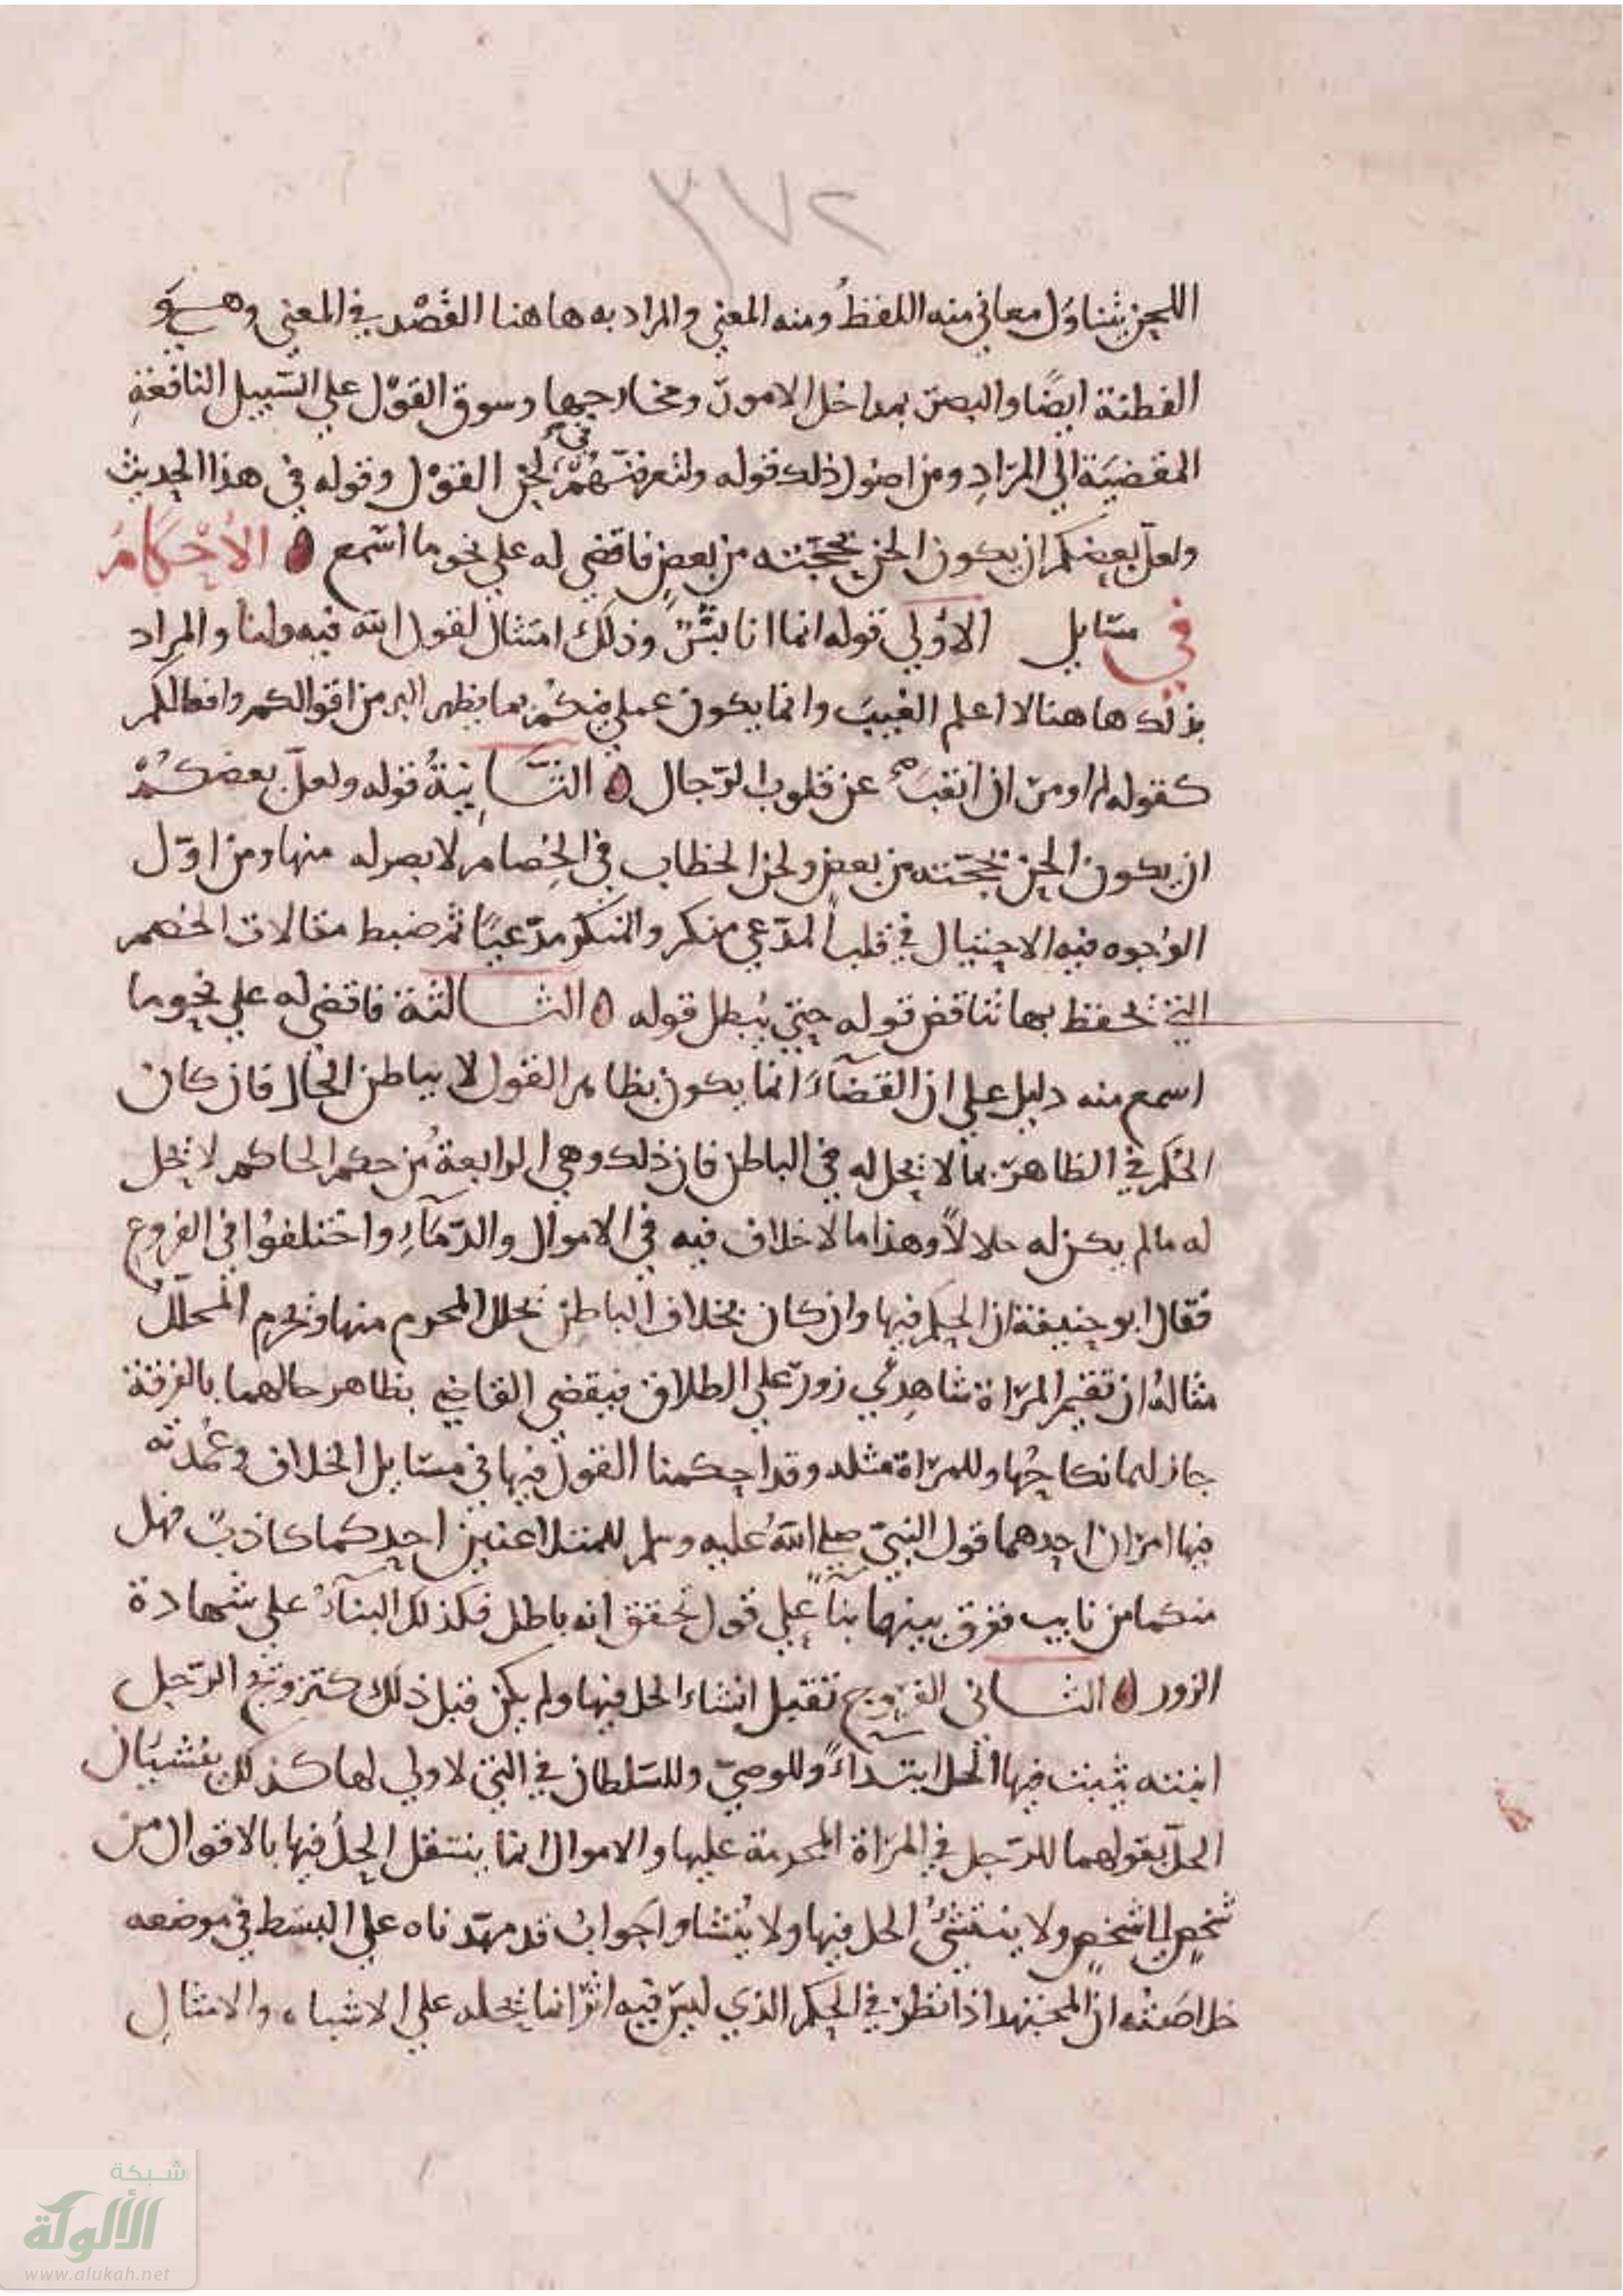 ٢٧٢
اللحن يتناول معاني منه اللفظ ومنه المعني والمراد به هاهنا القصد في المعني وهو
الفطنة ايضًا والبصر بمداخل الامور ومخارجها وسوق القول علي السبيل النافعة
المفضية الي المراد ومن اصول ذلك قوله ولتعرفنهم في لحن القول وقوله في هذا الحديث
ولعل بعضكم ان يكون الحن بحجته من بعض فاقضي له علي نحو ما اسمع الاحكام
في مسايل الاولي قوله انما انا بشر وذلك امتثال لقول الله فيه ولنا والمراد
بذلك هاهنا لا اعلم الغيب وانما يكون عملي منكم بما يظهر الي من اقوالكم وافعالكم
كقوله لم اومر ان انقب عن قلوب الرجال الثانية قوله ولعل بعضكم
ان يكون الحن بحجته من بعض ولحن الخطاب في الخصام لا بصر له منها ومن اول
الوجوه فيه الاحتيال في قلب المدعي منكر والمنكر مدعيًا ثم ضبط مقالات الخصم
التي تحفظ بها تناقض قوله حتي يبطل قوله الثالثة فاقضي له علي نحو ما
اسمع منه دليل علي ان القضاء انما يكون بظاهر القول لا بباطن الحال فان كان
الحكم في الظاهر بما لا يحل له في الباطن فان ذلك وهي الرابعة من حكم الحاكم لا يحل
له ما لم يكن له حلالاً وهذا ما لا خلاف فيه في الاموال والدماء واختلفوا في الفروج
فقال ابو حنيفة ان الحكم فيها وان كان بخلاف الباطن يحلل المحرم منها ويحرم المحلل
مثاله ان تقيم المراة شاهدي زور علي الطلاق فيقضي القاضي بظاهر حالهما بالفرقة
جاز لهما نكاحها وللمراة مثله وقد احكمنا القول فيها في مسايل الخلاف وعمدته
فيها امران احدهما قول النبي صلي الله عليه وسلم للمتلاعنين احدكما كاذب فهل
منكما من تايب ففرق بينهما بناً علي قول تحقق انه باطل فكذلك البناء علي شهادة
الزور الثاني الفروج تقبل انشاء الحل فيها ولم يكن قبل ذلك كتزويج الرجل
ابنته يثبت فيها الحل ابتداءً وللوصي وللسلطان في التي لا ولي لها كذلك ينشيان
الحل بقولهما للرجل في المراة المحرمة عليها والاموال انما ينتقل الحل فيها بالاقوال من
شخص الي شخص ولا ينتشئ الحل فيها ولا ينشا واجواب قد مهدناه علي البسط في موضعه
خلاصته ان المجتهد اذا نظر في الحكم الذي ليس فيه اثر انما يحمله علي الاشباه والامثال
شبكة
الألوكة
www.alukah.net